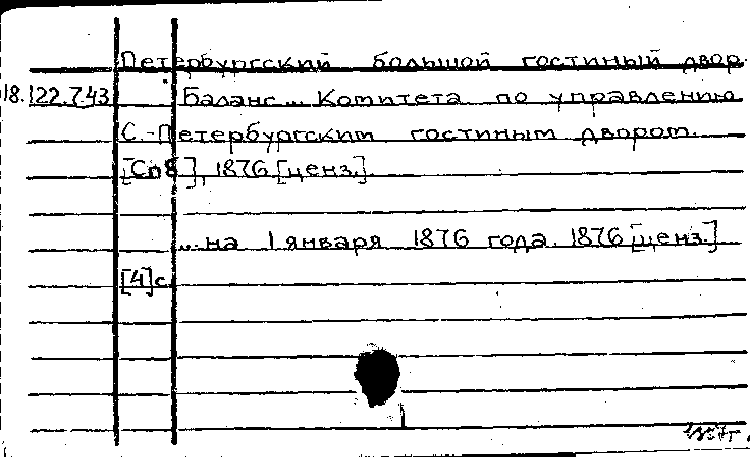 Петербургский большой гостиный двор.
18.122.7.43 Баланс... Комитета по управлению
С.-Петербургским гостиным двором.
[Спб], 1876 [ценз.].
...на 1 января 1876 года. 1876 [ценз.]
[4]с.